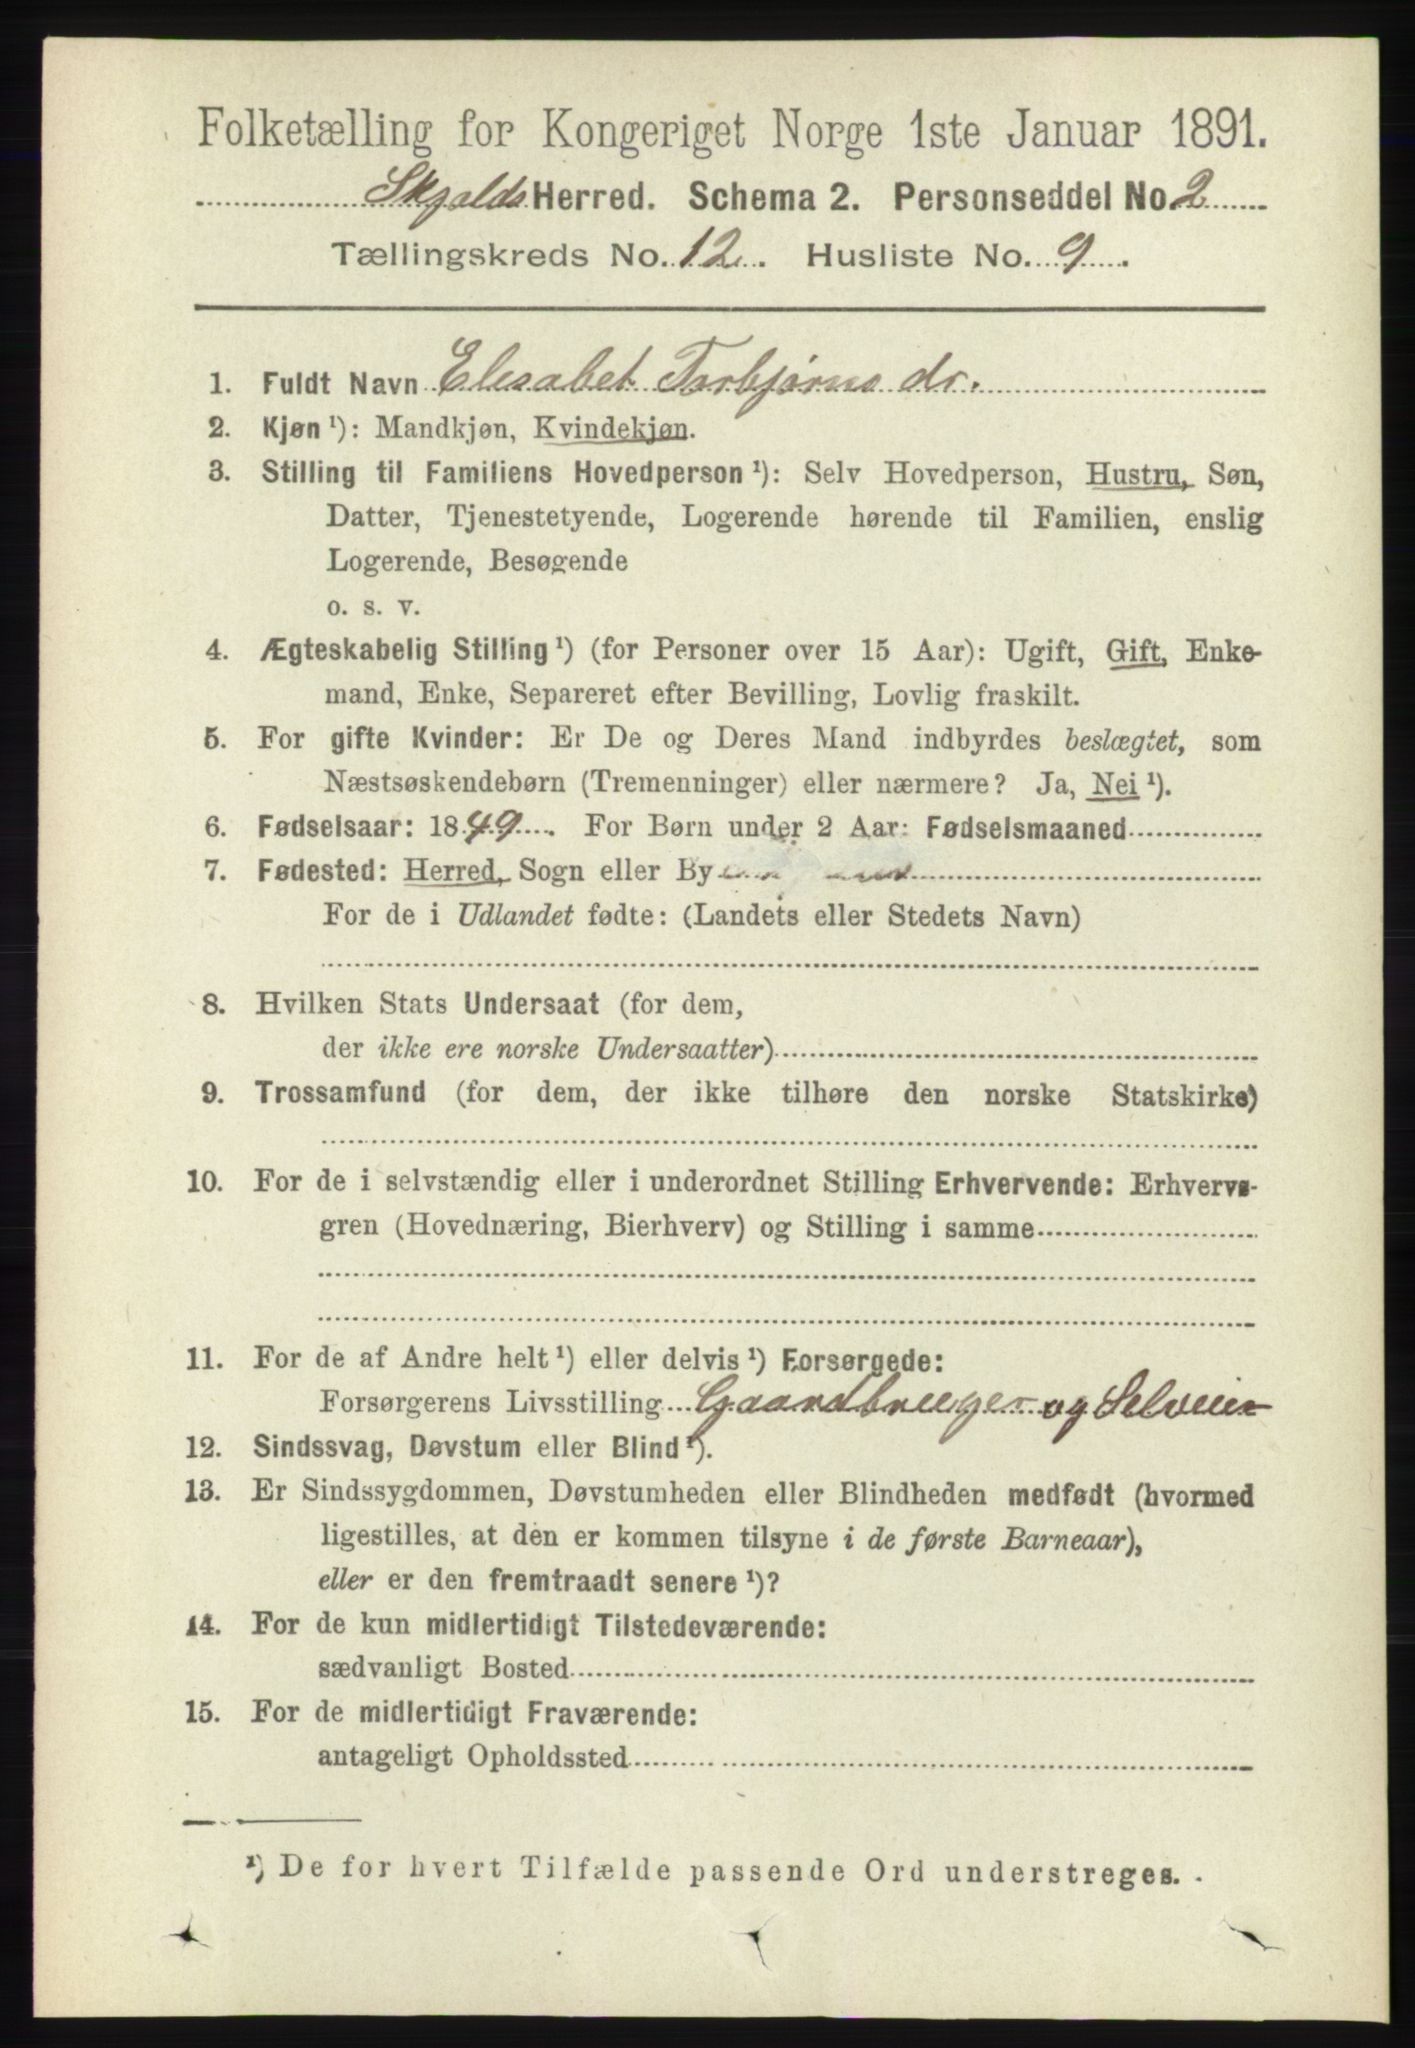 Folketælling for Kongeriget Norge 1ste Januar 1891.
Skjolds Herred. Schema 2. Personseddel No. 2
Tællingskreds No. 12. Husliste No. 9.
1. Fuldt Navn Elisabet Torbjørns dr.
2. Kjøn ¹): Mandkjøn, Kvindekjøn.
3. Stilling til Familiens Hovedperson ¹): Selv Hovedperson, Hustru, Søn,
Datter, Tjenestetyende, Logerende hørende til Familien, enslig
Logerende, Besøgende
o. s. v.
4. Ægteskabelig Stilling ¹) (for Personer over 15 Aar): Ugift, Gift, Enke-
mand, Enke, Separeret efter Bevilling, Lovlig fraskilt.
5. For gifte Kvinder: Er De og Deres Mand indbyrdes beslægtet, som
Næstsøskendebørn (Tremenninger) eller nærmere? Ja, Nei ¹).
6. Fødselsaar: 1849. For Børn under 2 Aar: Fødselsmaaned
7. Fødested: Herred, Sogn eller By
For de i Udlandet fødte: (Landets eller Stedets Navn)
8. Hvilken Stats Undersaat (for dem,
der ikke ere norske Undersaatter)
9. Trossamfund (for dem, der ikke tilhøre den norske Statskirke)
10. For de i selvstændig eller i underordnet Stilling Erhvervende: Erhvervs-
gren (Hovednæring, Bierhverv) og Stilling i samme
11. For de af Andre helt ¹) eller delvis ¹) Forsørgede:
Forsørgerens Livsstilling Gaardbruger og Selveier
12. Sindssvag, Døvstum eller Blind ¹).
13. Er Sindssygdommen, Døvstumheden eller Blindheden medfødt (hvormed
ligestilles, at den er kommen tilsyne i de første Barneaar),
eller er den fremtraadt senere ¹)?
14. For de kun midlertidigt Tilstedeværende:
sædvanligt Bosted
15. For de midlertidigt Fraværende:
antageligt Opholdssted
¹) De for hvert Tilfælde passende Ord understreges.